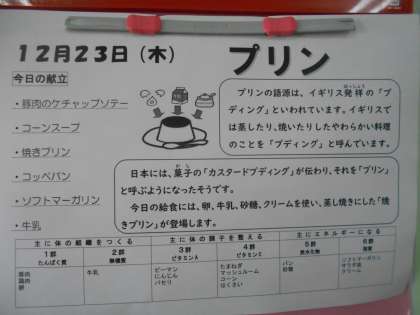 12月23日（木） プリン
今日の献立
・豚肉のケチャップソテー
・コーンスープ
・焼きプリン
・コッペパン
・ソフトマーガリン
・牛乳
プリンの語源は、イギリス発祥の「プ
ディング」といわれています。イギリスで
は蒸したり、焼いたりしたやわらかい料理
のことを「プディング」と呼んでいます。
日本には、菓子の「カスタードプディング」が伝わり、それを「プリン」
と呼ぶようになったそうです。
今日の給食には、卵、牛乳、砂糖、クリームを使い、蒸し焼きにした「焼
きプリン」が登場します。
主に体の組織をつくる 主に体の調子を整える 主にエネルギーになる
1群 2群 3群 4群 5群 6群
たんぱく質 無機質 ビタミンA ビタミンC 炭水化物 脂質
豚肉 牛乳 ピーマン たまねぎ パン ソフトマーガリン
鶏肉 にんじん マッシュルーム 砂糖 サラダ油
卵 パセリ コーン クリーム
はくさい